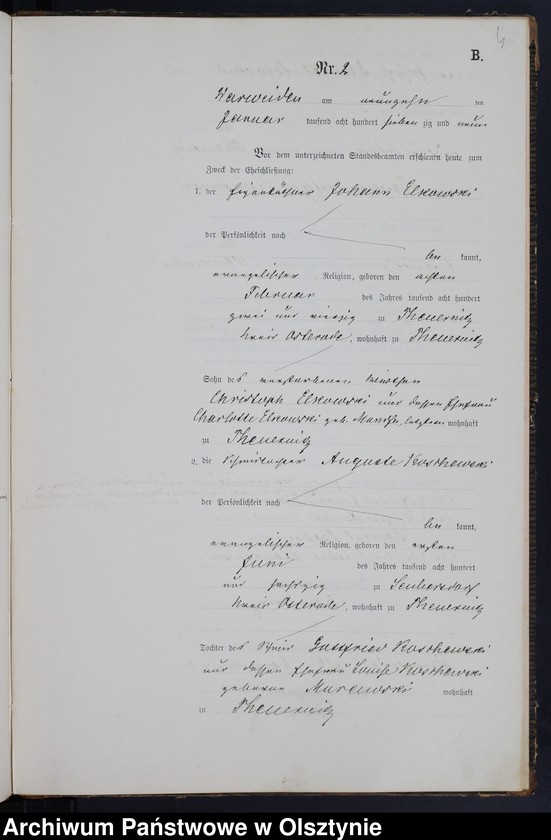 4
B.
Nr. 2
Warweiden am neunzehn ten
Januar tausend acht hundert sieben zig und neun
Vor dem unterzeichneten Standesbeamten erschienen heute zum
Zweck der Eheschließung:
1. der Eigenkäthner Johann Elkowski
der Persönlichkeit nach
be kannt,
evangelischer Religion, geboren den achten
Februar des Jahres tausend acht hundert
zwei und vierzig zu Theuernitz
Kreis Osterode, wohnhaft zu Theuernitz
Sohn des verstorbenen
Christoph Elkowski und dessen Ehefrau
Charlotte Elkowski geb. letztere wohnhaft
zu Theuernitz
2. die Auguste Koschewski
der Persönlichkeit nach
be kannt,
evangelischer Religion, geboren den ersten
Juni des Jahres tausend acht hundert
und sechszig zu Seubersdorf
Kreis Osterode, wohnhaft zu Theuernitz
Tochter des Gottfried Koschewski
und dessen Ehefrau Louise Koschewski
geborene wohnhaft
zu Theuernitz
Archiwum Państwowe w Olsztynie